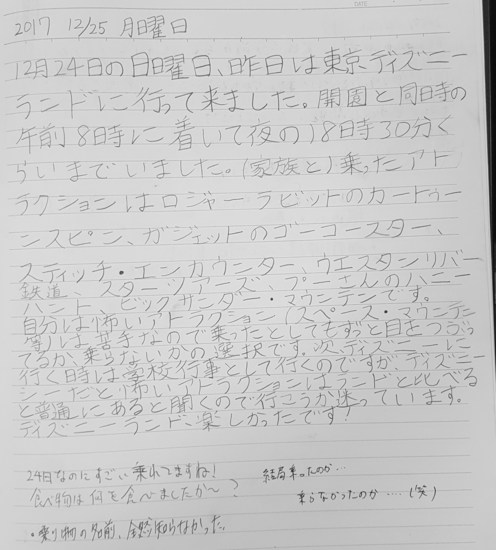 2017 12/25 月曜日
12月24日の日曜日、昨日は東京ディズニー
ランドに行って来ました。開園と同時の
午前8時に着いて夜の18時30分く
らいまでいました。(家族と)乗ったアト
ラクションはロジャーラビットのカートゥー
ンスピン、ガジェットのゴーコースター、
スティッチ・エンカウンター、ウエスタンリバー
鉄道、スターツアーズ、プーさんのハニー
ハント、ビックサンダー・マウンテンです。
自分は怖いアトラクション(スペース・マウンテン
等)は苦手なので乗ったとしてもずっと目をつぶっ
てるか、乗らないかの選択です。次、ディズニーに
行く時は学校行事として行くのですが、ディズニー
シーだと怖いアトラクションはランドと比べる
と普通にあると聞くので行こうか迷っています。
ディズニーランド、楽しかったです!
24日なのにすごい乗れてますね!
食べ物は何を食べましたか〜?
結局乗ったのか…
乗らなかったのか….(笑)
・乗り物の名前、全然知らなかった..